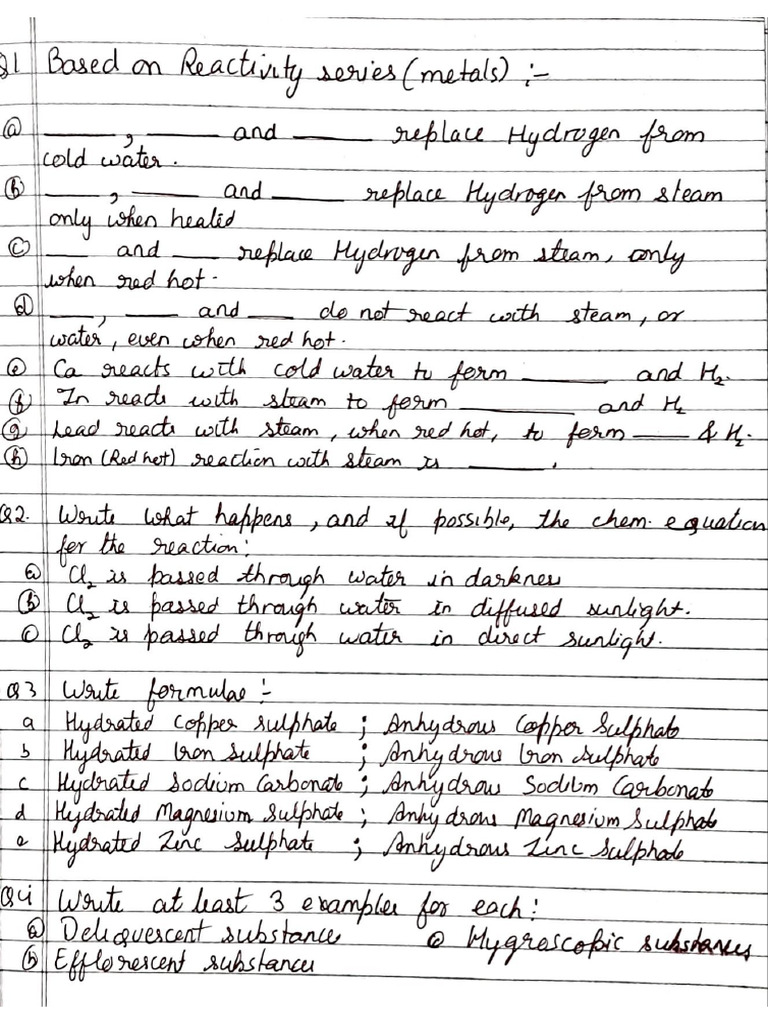 Q1 Based on Reactivity series (metals) :-
(a) ____, ____ and ____ replace Hydrogen from
cold water.
(b) ____, ____ and ____ replace Hydrogen from steam
only when heated
(c) ____ and ____ replace Hydrogen from steam, only
when red hot.
(d) ____, ____ and ____ do not react with steam, or
water, even when red hot.
(e) Ca reacts with cold water to form ____ and H₂.
(f) Zn reacts with steam to form ____ and H₂
(g) Lead reacts with steam, when red hot, to form ____ & H₂.
(h) Iron (Red hot) reaction with steam is ____.
Q2. Write what happens, and if possible, the chem. equation
for the reaction:
(a) Cl₂ is passed through water in darkness
(b) Cl₂ is passed through water in diffused sunlight.
(c) Cl₂ is passed through water in direct sunlight.
Q3 Write formulae :-
a Hydrated Copper Sulphate ; Anhydrous Copper Sulphate
b Hydrated Iron Sulphate ; Anhydrous Iron Sulphate
c Hydrated Sodium Carbonate ; Anhydrous Sodium Carbonate
d Hydrated Magnesium Sulphate ; Anhydrous Magnesium Sulphate
e Hydrated Zinc Sulphate ; Anhydrous Zinc Sulphate
Q4 Write at least 3 examples for each:
(a) Deliquescent substance (c) Hygroscopic substances
(b) Efflorescent substances